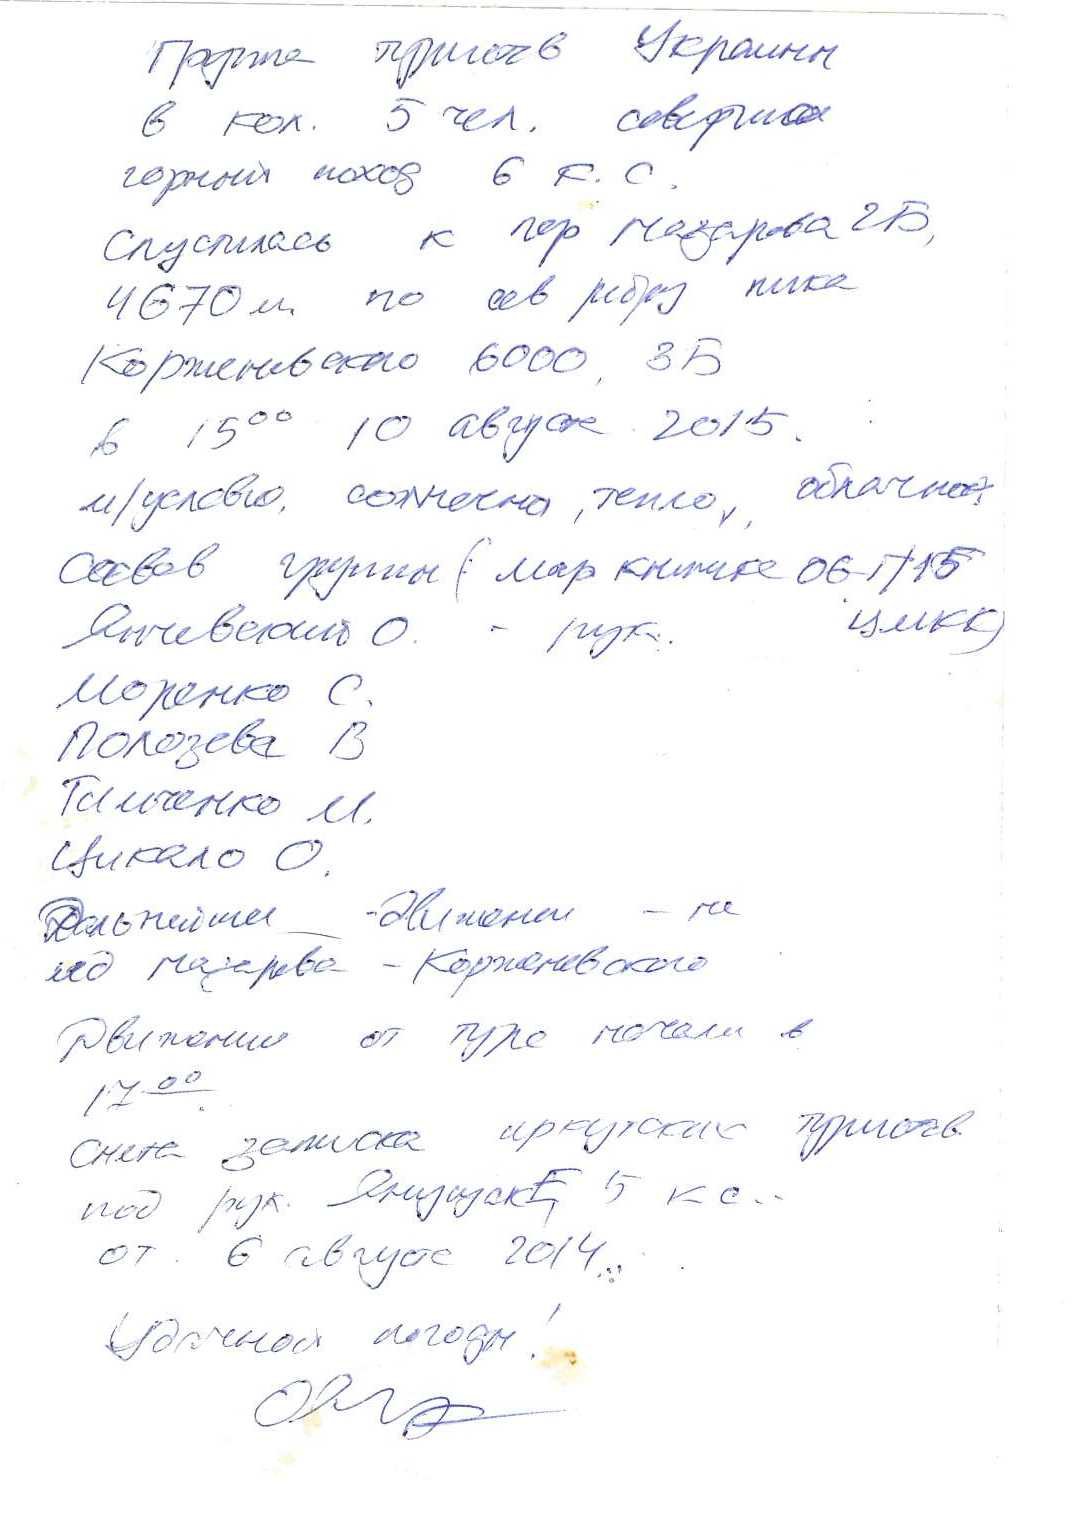 Группа туристов Украины
в кол. 5 чел. совершая
горный поход 6 к.с.
Спустилась к пер Назарова 2Б,
4670м. по сев ребру пика
Корженевского 6000, 3Б
в 15⁰⁰ 10 августа 2015.
м/условия, солнечно, тепло, облачно
Состав группы (мар книжка 06-1/15
Янчевский О. - рук. ЦМКК)
Моренко С.
Полозева В
Тимченко М.
Цикало О.
Дальнейшее движение - на
лед Назарова - Корженевского
Движение от тура начали в
17⁰⁰.
Снята записка иркутских туристов
под рук. 5 к с..
от 6 августа 2014.
Удачной погоды!